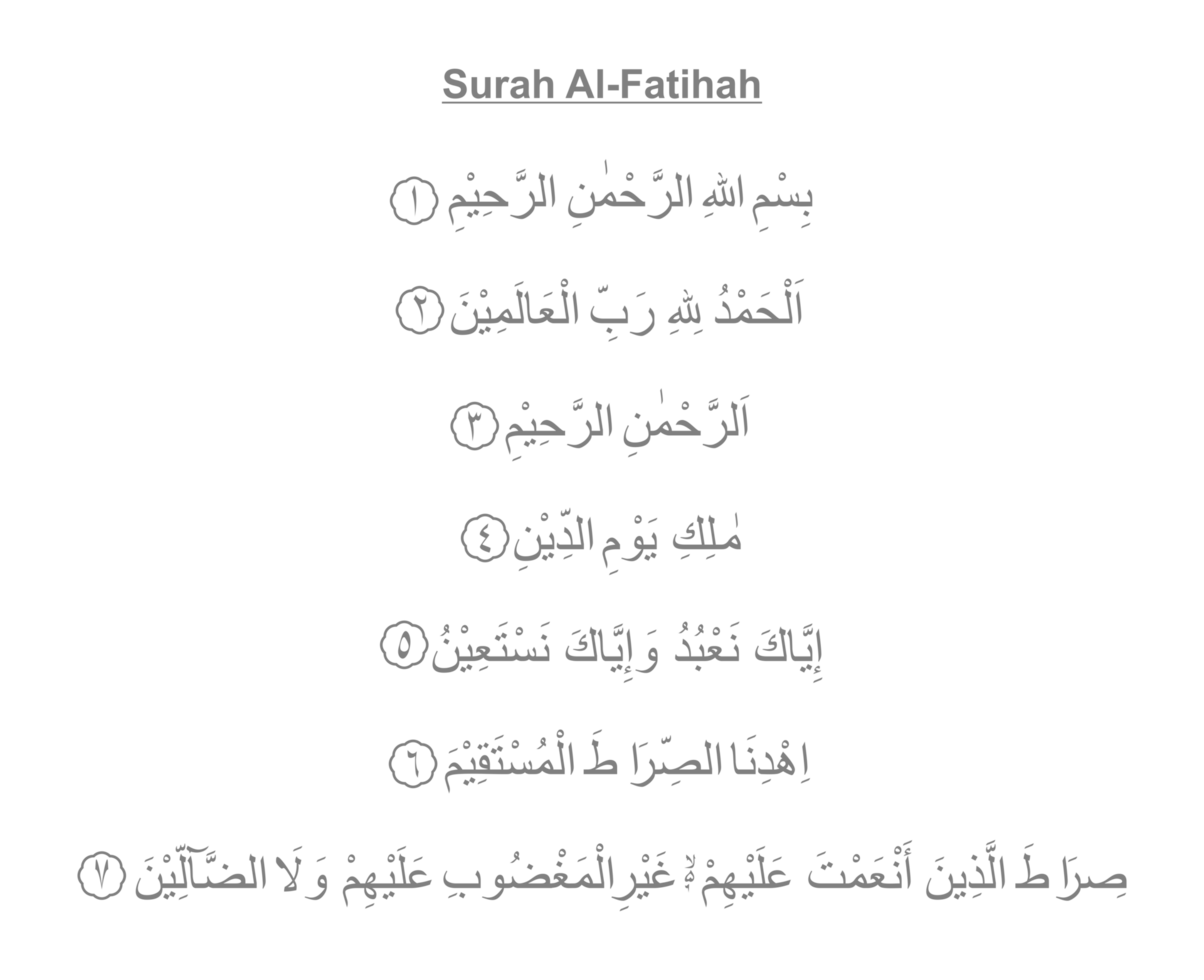 Surah Al-Fatihah
بِسْمِ اللهِ الرَّحْمٰنِ الرَّحِيْمِ ١
اَلْحَمْدُ لِلهِ رَبِّ الْعَالَمِيْنَ ٢
اَلرَّحْمٰنِ الرَّحِيْمِ ٣
مٰلِكِ يَوْمِ الدِّيْنِ ٤
إِيَّاكَ نَعْبُدُ وَإِيَّاكَ نَسْتَعِيْنُ ٥
اِهْدِنَا الصِّرَا طَ الْمُسْتَقِيْمَ ٦
صِرَا طَ الَّذِينَ أَنْعَمْتَ عَلَيْهِمْ ۙ غَيْرِالْمَغْضُوبِ عَلَيْهِمْ وَلَا الضَّآلِّيْنَ ٧